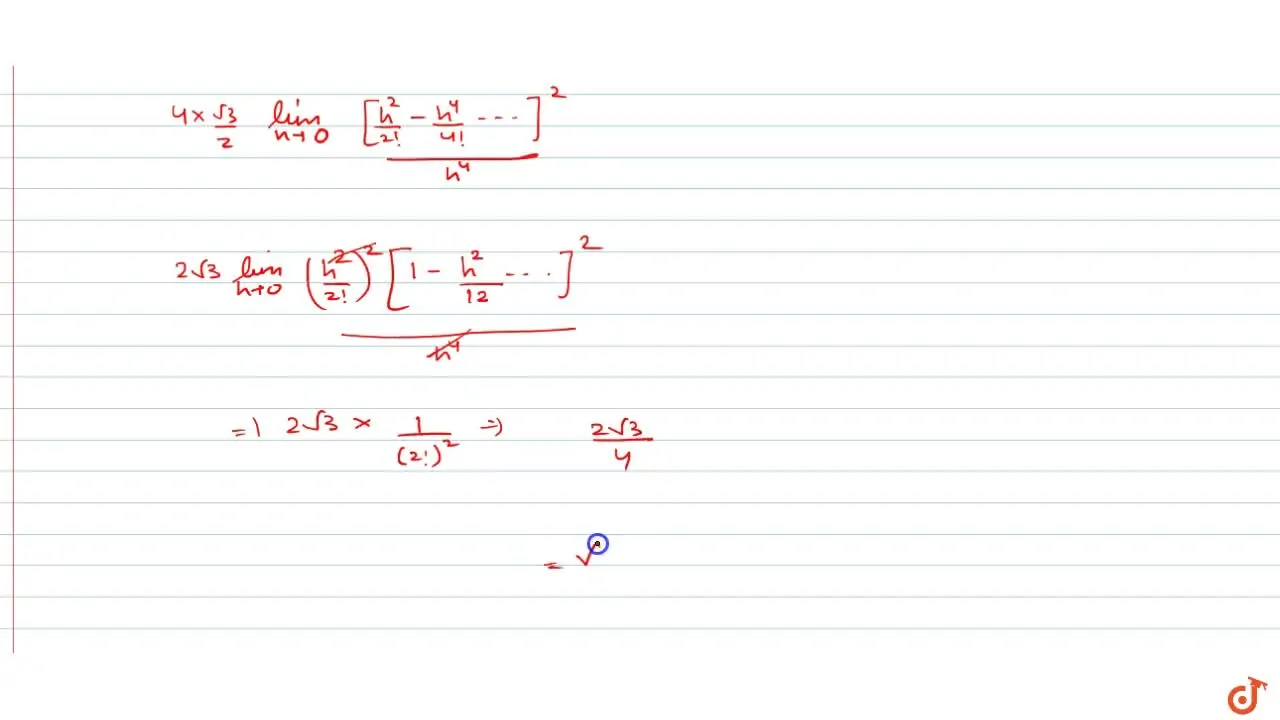 4 × √3/2 lim h→0 [h²/2! - h⁴/4! ---]² / h⁴
2√3 lim h→0 (h²/2!)² [1 - h²/12 ---.]² / h⁴
=) 2√3 × 1/(2!)² => 2√3/4
= √